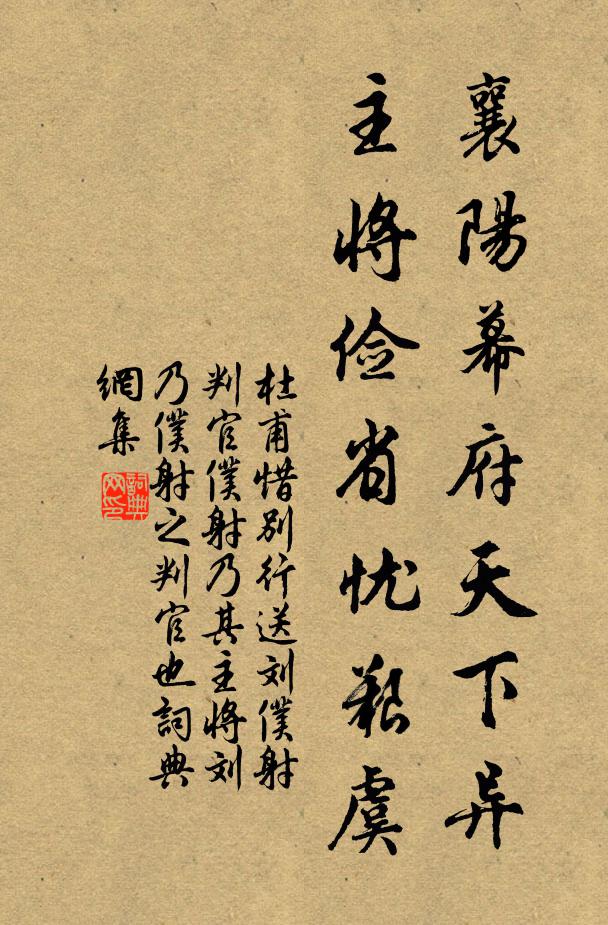 襄陽幕府天下异
主将俭省忧艱虞
杜甫惜别行送刘僕射
判官僕射乃其主將刘
乃僕射之判官也詞典
網集
詞典網印